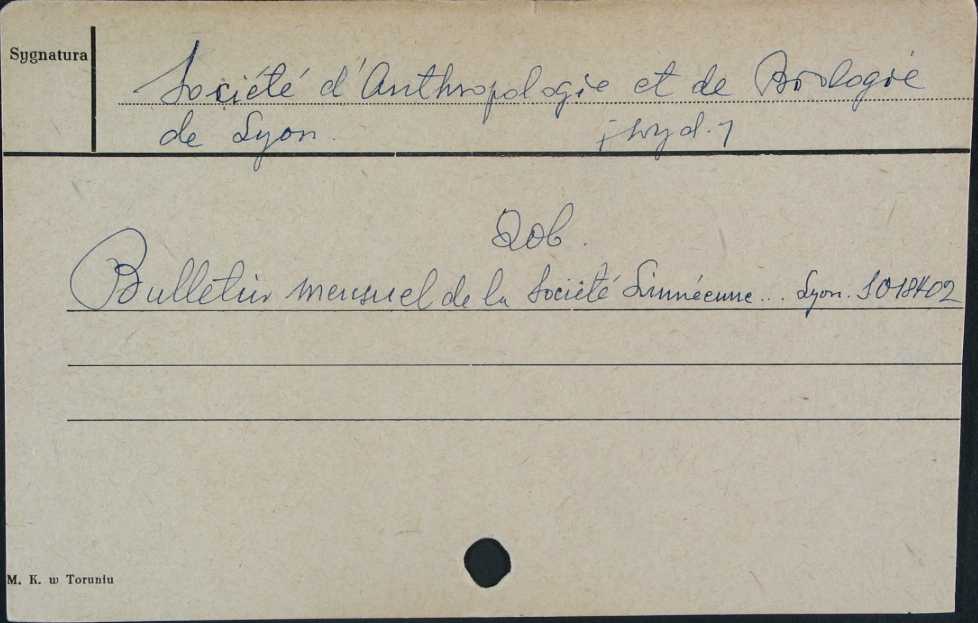 Sygnatura
Société d'Anthropologie et de Biologie
de Lyon. [wyd.]
Zob.
Bulletin mensuel de la Société Linnéenne... Lyon. S018402
M. K. w Toruniu